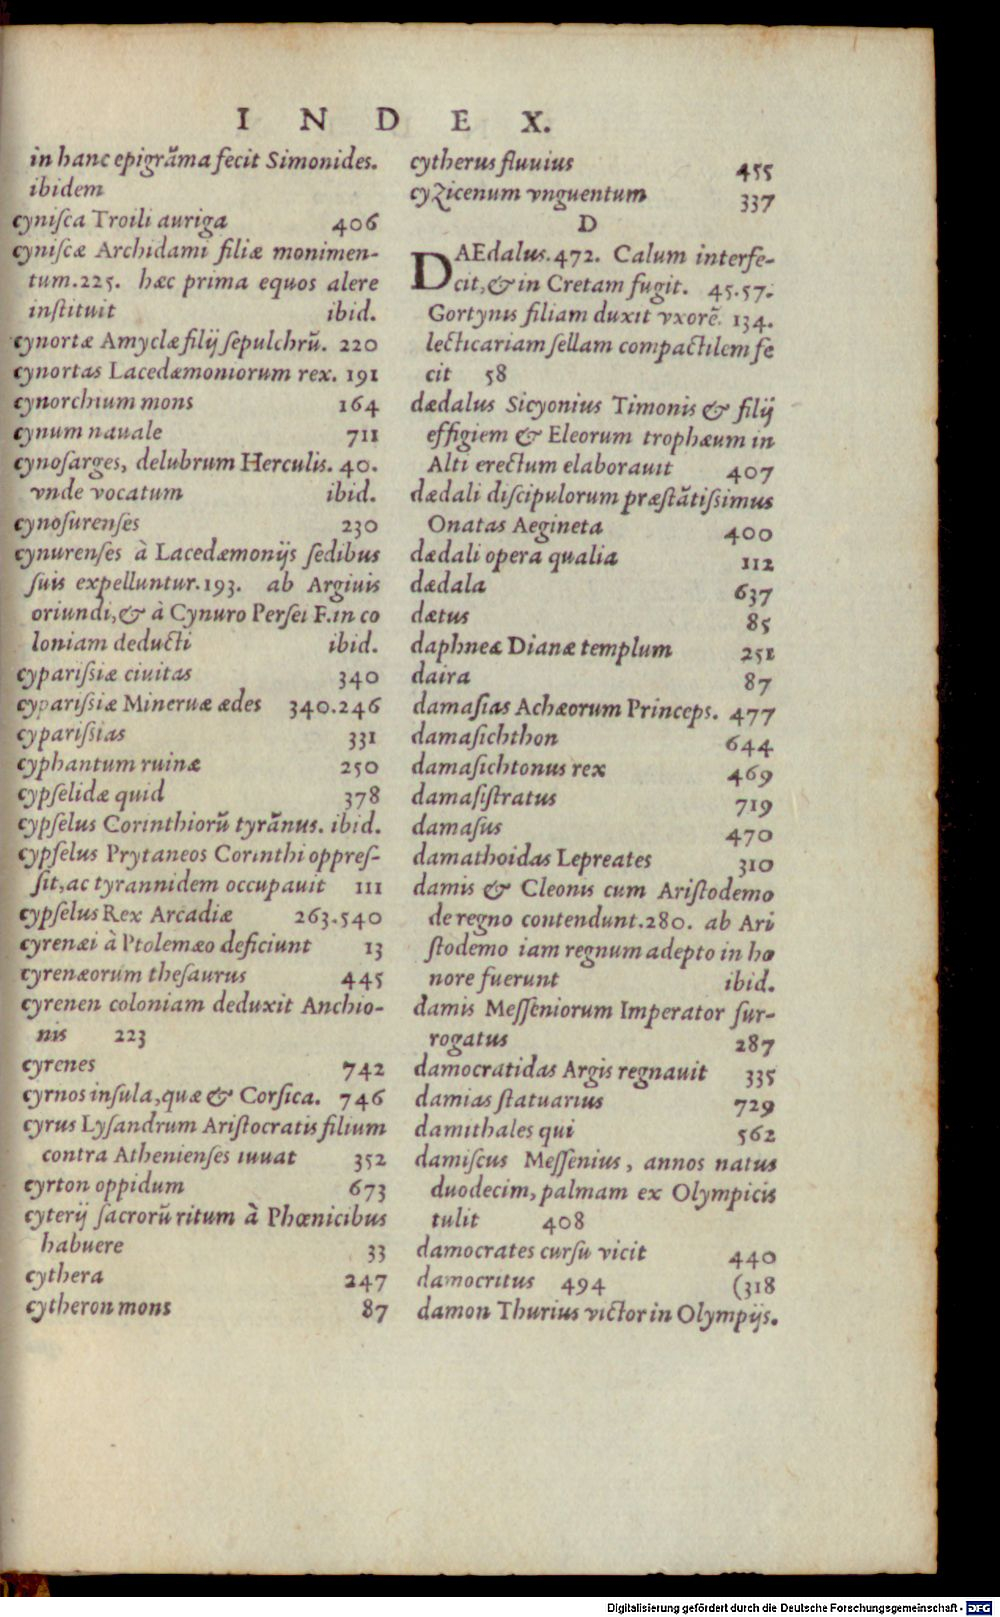 INDEX.
in hanc epigrãma fecit Simonides.
ibidem
cyniſca Troili auriga 406
cyniſcæ Archidami filiæ monimen-
tum.225. hæc prima equos alere
inſtituit ibid.
cynortæ Amyclæ filij ſepulchrũ. 220
cynortas Lacedæmoniorum rex. 191
cynorchium mons 164
cynum nauale 711
cynoſarges, delubrum Herculis. 40.
vnde vocatum ibid.
cynoſurenſes 230
cynurenſes à Lacedæmonijs ſedibus
ſuis expelluntur.193. ab Argiuis
oriundi,& à Cynuro Perſei F.in co
loniam deducti ibid.
cypariſsiæ ciuitas 340
cypariſsiæ Mineruæ ædes 340.246
cypariſsias 331
cyphantum ruinæ 250
cypſelidæ quid 378
cypſelus Corinthiorũ tyrãnus. ibid.
cypſelus Prytaneos Corinthi oppreſ-
ſit,ac tyrannidem occupauit 111
cypſelus Rex Arcadiæ 263.540
cyrenæi à Ptolemæo deficiunt 13
cyrenæorum theſaurus 445
cyrenen coloniam deduxit Anchio-
nis 223
cyrenes 742
cyrnos inſula,quæ & Corſica. 746
cyrus Lyſandrum Ariſtocratis filium
contra Athenienſes iuuat 352
cyrton oppidum 673
cyterij ſacrorũ ritum à Phœnicibus
habuere 33
cythera 247
cytheron mons 87
cytherus fluuius 455
cyzicenum vnguentum 337
D
DAEdalus.472. Calum interfe-
cit,& in Cretam fugit. 45.57.
Gortynis filiam duxit vxorẽ. 134.
lecticariam ſellam compactilem fe
cit 58
dædalus Sicyonius Timonis & filij
effigiem & Eleorum trophæum in
Alti erectum elaborauit 407
dædali diſcipulorum præſtãtiſsimus
Onatas Aegineta 400
dædali opera qualia 112
dædala 637
dætus 85
daphneæ Dianæ templum 251
daira 87
damaſias Achæorum Princeps. 477
damaſichthon 644
damaſichtonus rex 469
damaſiſtratus 719
damaſus 470
damathoidas Lepreates 310
damis & Cleonis cum Ariſtodemo
de regno contendunt.280. ab Ari
ſtodemo iam regnum adepto in ho
nore fuerunt ibid.
damis Meſſeniorum Imperator ſur-
rogatus 287
damocratidas Argis regnauit 335
damias ſtatuarius 729
damithales qui 562
damiſcus Meſſenius, annos natus
duodecim, palmam ex Olympicis
tulit 408
damocrates curſu vicit 440
damocritus 494 (318
damon Thurius victor in Olympijs.
Digitalisierung gefördert durch die Deutsche Forschungsgemeinschaft - DFG